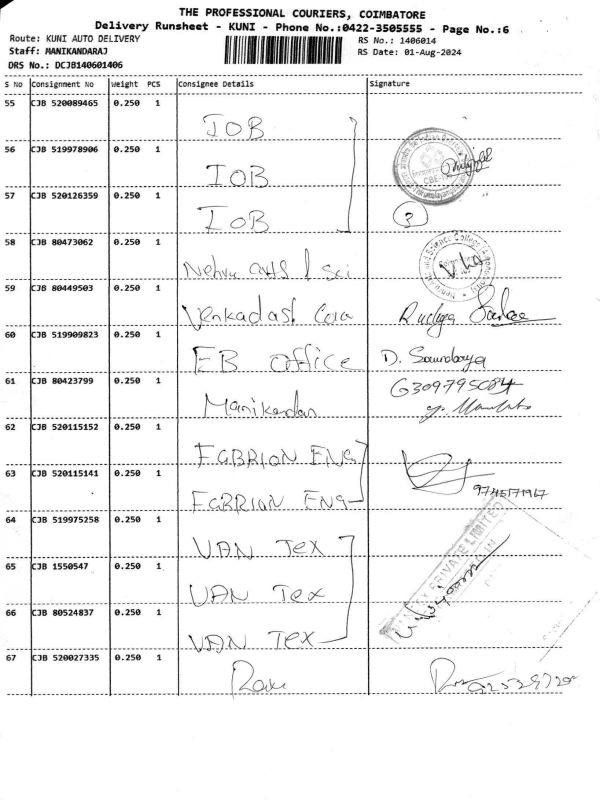 THE PROFESSIONAL COURIERS, COIMBATORE
Delivery Runsheet - KUNI - Phone No.:0422-3505555 - Page No.:6
Route: KUNI AUTO DELIVERY
RS No.: 1406014
Staff: MANIKANDARAJ
RS Date: 01-Aug-2024
DRS No.: DCJB140601406
S No Consignment No Weight PCS Consignee Details Signature
55 CJB 520089465 0.250 1 IOB
56 CJB 519978906 0.250 1 IOB
57 CJB 520126359 0.250 1 IOB 3
58 CJB 80473062 0.250 1 Nehru arts & Sci
59 CJB 80449503 0.250 1 Venkadast
60 CJB 519909823 0.250 1 EB office D. Soundarya
61 CJB 80423799 0.250 1 Manikandan 6309795084
62 CJB 520115152 0.250 1 FGBRION ENG
63 CJB 520115141 0.250 1 FGBRION ENG
64 CJB 519975258 0.250 1 VAN TEX
PRIVATE LIMITED
65 CJB 1550547 0.250 1 VAN TEX
66 CJB 80524837 0.250 1 VAN TEX
67 CJB 520027335 0.250 1